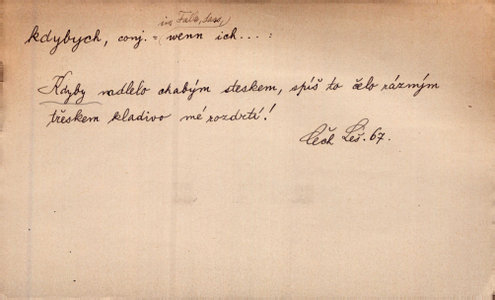 im Falle, dass,
kdybych, conj. = wenn ich...:
Kdyby nadlelo chabým steskem, spíš to čelo rázným
třeskem kladivo mé rozdrtí!
Čech Leš. 67.